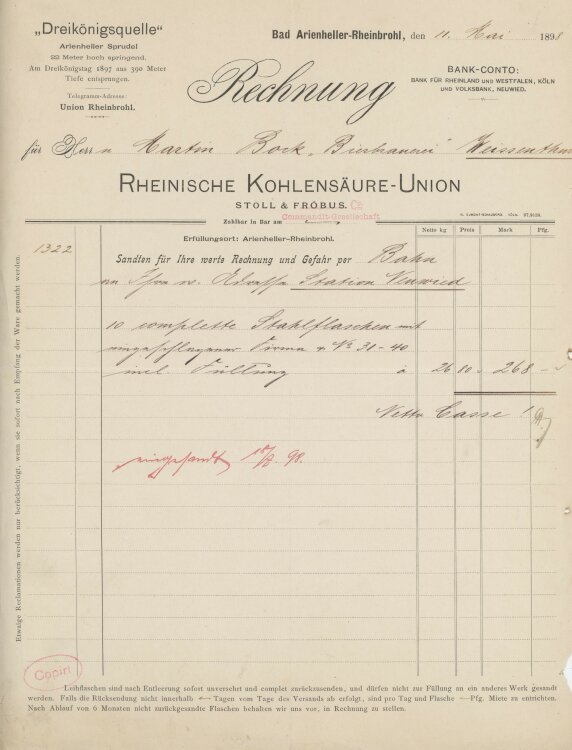 „Dreikönigsquelle"
Arienheller Sprudel
22 Meter hoch springend.
Am Dreikönigstag 1897 aus 390 Meter
Tiefe entsprungen.
Telegramm-Adresse:
Union Rheinbrohl.
Bad Arienheller-Rheinbrohl, den 11. Mai 1898
Rechnung
BANK-CONTO:
BANK FÜR RHEINLAND UND WESTFALEN, KÖLN
UND VOLKSBANK, NEUWIED.
für Herrn Martin Bock „Bierbrauerei" Weissenthurm
RHEINISCHE KOHLENSÄURE-UNION
STOLL & FRÖBUS. Co
Commandit-Gesellschaft
Zahlbar in Bar am
Netto kg Preis Mark Pfg.
Erfüllungsort: Arienheller-Rheinbrohl.
1322 Sandten für Ihre werte Rechnung und Gefahr per Bahn
an Ihre w. Adresse Station Neuwied
10 complette Stahlflaschen mit
eingeschlagener Firma & No 31-40
incl. Füllung à 26 80 268 —
Netto Cassa!
eingesandt 98.
Etwaige Reclamationen werden nur berücksichtigt, wenn sie sofort nach Empfang der Ware gemacht werden.
Copirt
Leihflaschen sind nach Entleerung sofort unversehrt und complet zurückzusenden, und dürfen nicht zur Füllung an ein anderes Werk gesandt
werden. Falls die Rücksendung nicht innerhalb — Tagen vom Tage des Versands ab erfolgt, sind pro Tag und Flasche — Pfg. Miete zu entrichten.
Nach Ablauf von 6 Monaten nicht zurückgesandte Flaschen behalten wir uns vor, in Rechnung zu stellen.